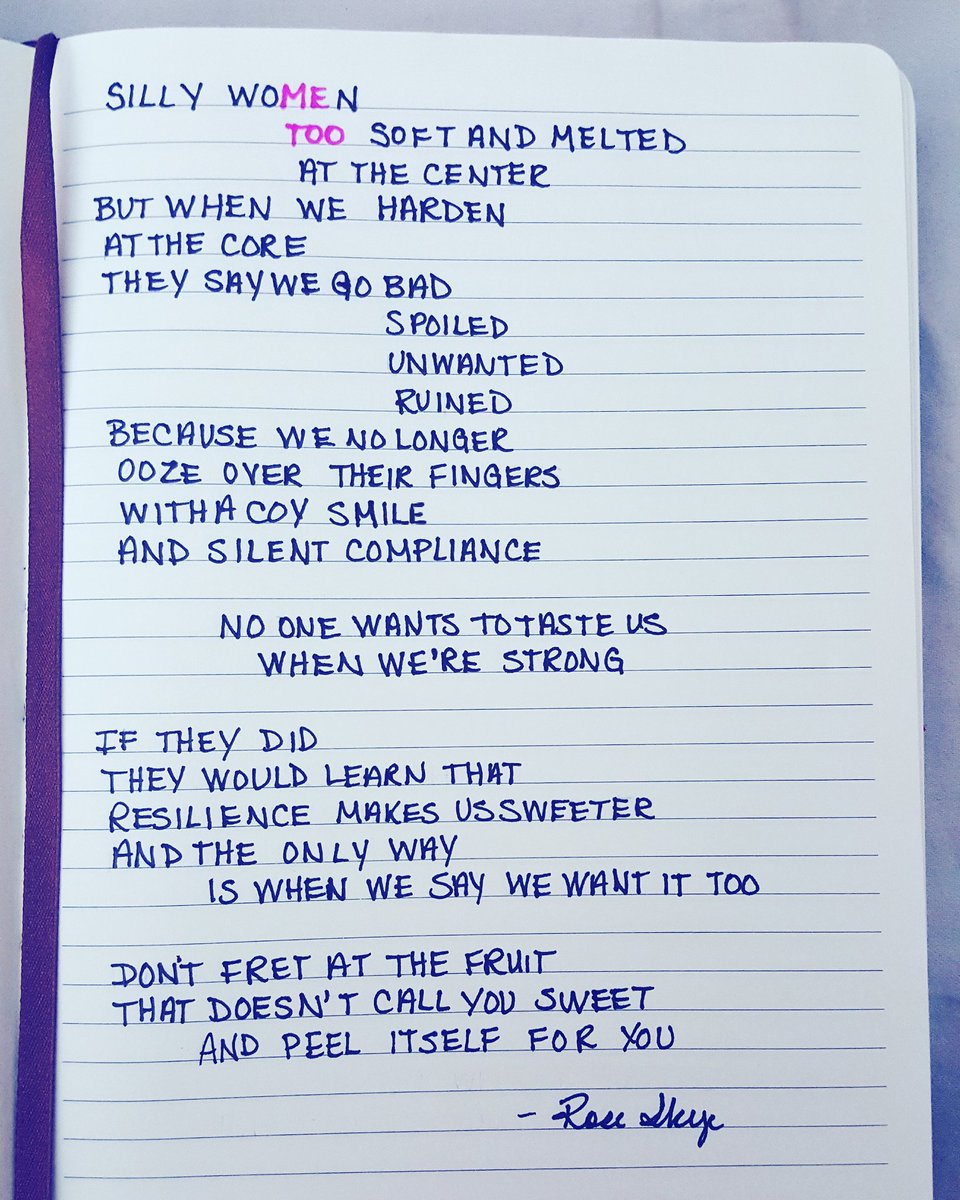 SILLY WOMEN
TOO SOFT AND MELTED
AT THE CENTER
BUT WHEN WE HARDEN
AT THE CORE
THEY SAY WE GO BAD
SPOILED
UNWANTED
RUINED
BECAUSE WE NO LONGER
OOZE OVER THEIR FINGERS
WITH A COY SMILE
AND SILENT COMPLIANCE
NO ONE WANTS TO TASTE US
WHEN WE'RE STRONG
IF THEY DID
THEY WOULD LEARN THAT
RESILIENCE MAKES US SWEETER
AND THE ONLY WAY
IS WHEN WE SAY WE WANT IT TOO
DON'T FRET AT THE FRUIT
THAT DOESN'T CALL YOU SWEET
AND PEEL ITSELF FOR YOU
- Rose Skye